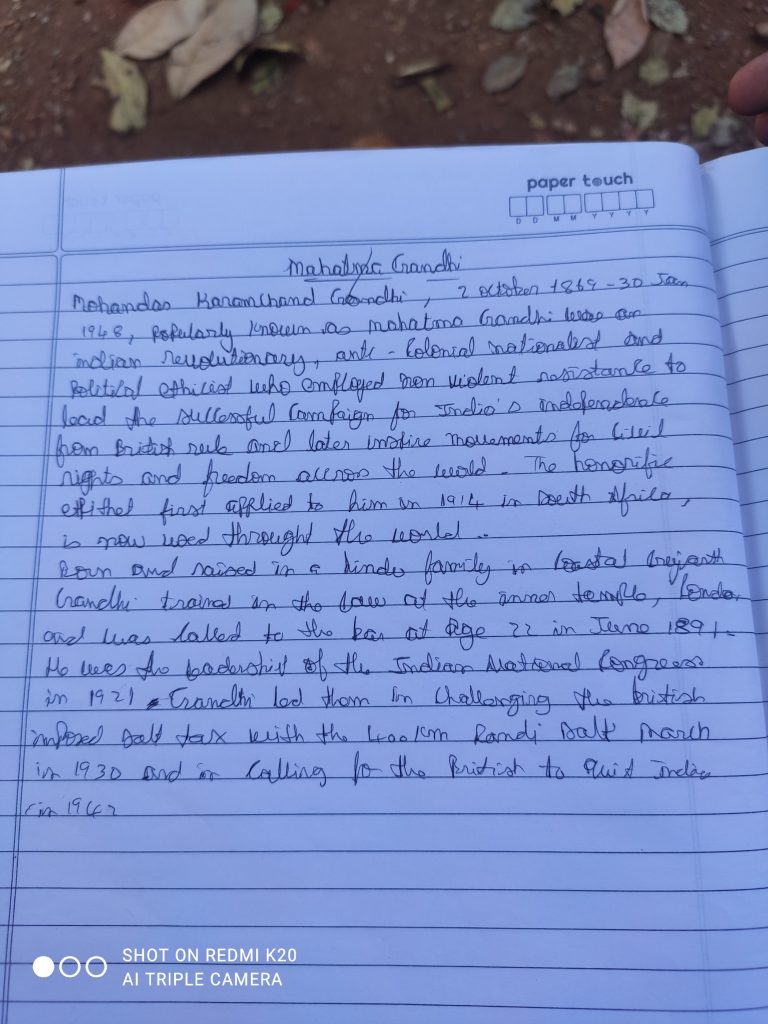 paper touch
D D M M Y Y Y Y
Mahatma Gandhi
Mohandas Karamchand Gandhi, 2 october 1869 - 30 Jan
1948, popularly known as mahatma Gandhi was an
indian revolutionary, anti-colonial nationalist and
political ethicist who employed non violent resistance to
lead the successful campaign for India's independence
from British rule and later inspire movements for civil
rights and freedom accross the world. The honorific
epithet first applied to him in 1914 in South Africa,
is now used throught the world..
Born and raised in a hindu family in coastal
Gandhi trained in the law at the inner temple,
and was called to the bar at age 22 in June 1891.
He was the leadership of the Indian National Congress
in 1921. Gandhi led them in challenging the british
imposed salt tax with the 400km Dandi salt march
in 1930 and in calling for the British to quit India
in 1942
SHOT ON REDMI K20
AI TRIPLE CAMERA